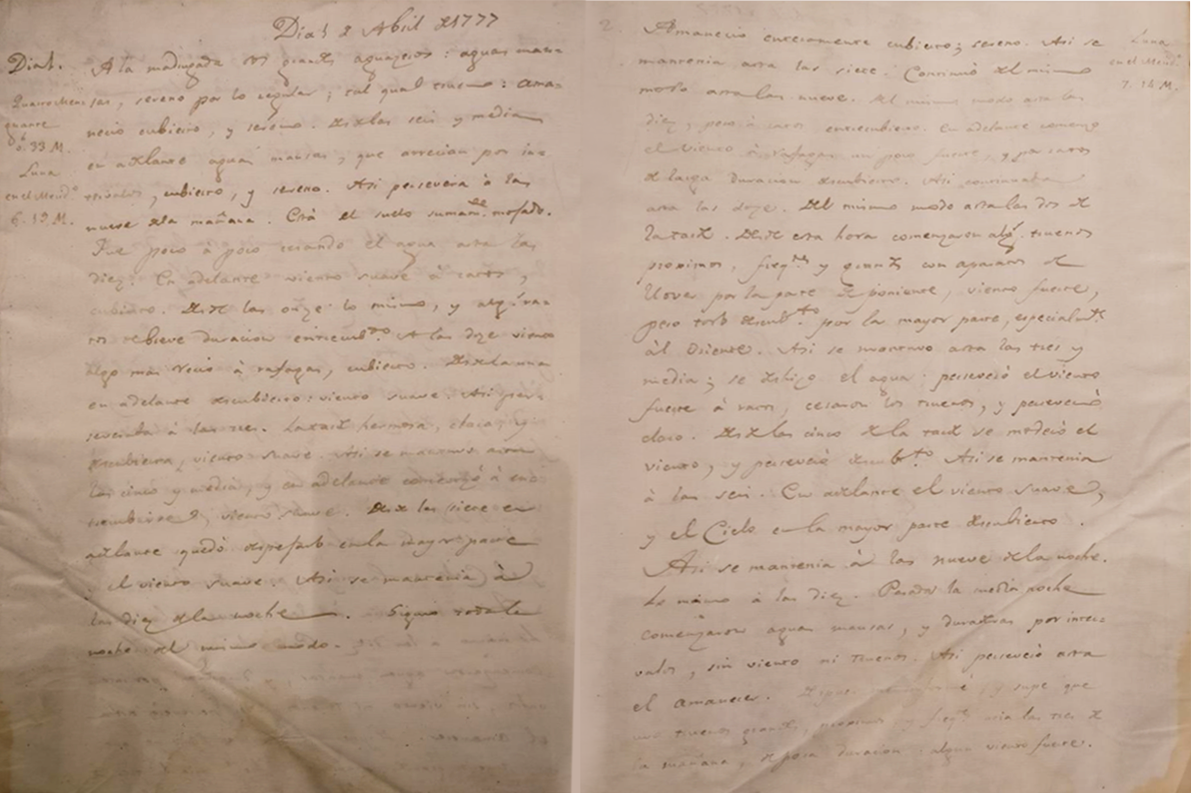 Dia 1 2 Abril de 1777
Dia 1.
A la madrugada dos grandes aguaceros: aguas man-
sas, sereno por lo regular; tal qual trueno: ama-
necio cubierto, y sereno. Desde las seis y media
en adelante aguas mansas, que arrecian por in-
tervalos, cubierto, y sereno. Asi persevera à las
nueve de la mañana. Està el suelo sumamte. mojado.
Fue poco à poco cesando el agua asta las
diez. En adelante viento suave à ratos,
cubierto. Desde las onze lo mismo, y algs. ra-
tos de breve duracion entrecubto. A las doze viento
algo mas recio à rafagas, cubierto. Desde la una
en adelante descubierto: viento suave. Asi per-
severaba à las tres. La tarde hermosa, clara, y
descubierta, viento suave. Asi se mantuvo asta
las cinco y media, y en adelante comenzó à en-
viento suave. Desde las siete en
adelante quedò despejado en la mayor parte
el viento suave. Asi se mantenia à
las diez de la noche. Siguio toda la
noche del mismo modo.
Quarto Men
guante
6. 33 M.
Luna
en el Merid.
6. 19 M.
2.
Amanecio enteramente cubierto; sereno. Asi se
mantenia asta las siete. Continuó del mismo
modo asta las nueve. Del mismo modo asta las
diez, pero à ratos entrecubierto. En adelante comenzó
el viento à rafagas un poco fuerte, y por ratos
de larga duracion descubierto. Asi continuaba
asta las doze. Del mismo modo asta las dos de
la tarde. Desde esta hora comenzaron algs. truenos
proximos, freqtes. y grandes con aparatos de
llover por la parte de poniente, viento fuerte,
pero todo descubto. por la mayor parte, especialmte.
àl Oriente. Asi se mantuvo asta las tres y
media; se deshizo el agua: perseverò el viento
fuerte à ratos, cesaron los truenos, y perseverò
claro. Desde las cinco de la tarde se moderò el
viento, y perseverò descubto. Asi se mantenia
à las seis. En adelante el viento suave,
y el Cielo en la mayor parte descubierto.
Asi se mantenia à las nueve de la noche.
Lo mismo à las diez. Pasada la media noche
comenzaron aguas mansas, y duraderas por inter-
valos, sin viento ni truenos. Asi perseverò asta
el amanecer. y supe que
uvo truenos grandes, proximos, y freqtes. acia las tres de
la mañana, de poca duracion: algun viento fuerte.
Luna
en el Merid.
7. 14 M.